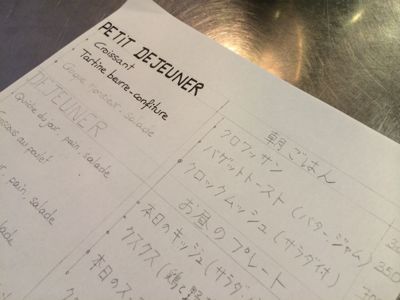 PETIT DEJEUNER
• Croissant
• Tartine beurre-confiture
• Croque monsieur, salade
DEJEUNER
Quiche du jour, pain, salade
au poulet
pain, salade
salade
朝ごはん
• クロワッサン
• バゲットトースト (バター・ジャム)
• クロックムッシュ (サラダ付)
お昼のプレート
• 本日のキッシュ (サラダ
• クスクス (鶏と野
• 本日のス
350